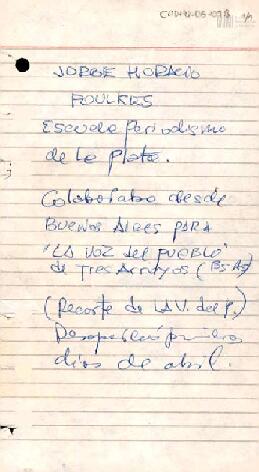 JORGE HORACIO
FOULKES
Escuela Periodismo
de La Plata.
Colaboraba desde
Buenos Aires PARA
"LA VOZ del PUEBLO"
de Tres Arroyos (Bs As)
(Recorte de LA V. del P.)
Desapareció primeros
días de abril.